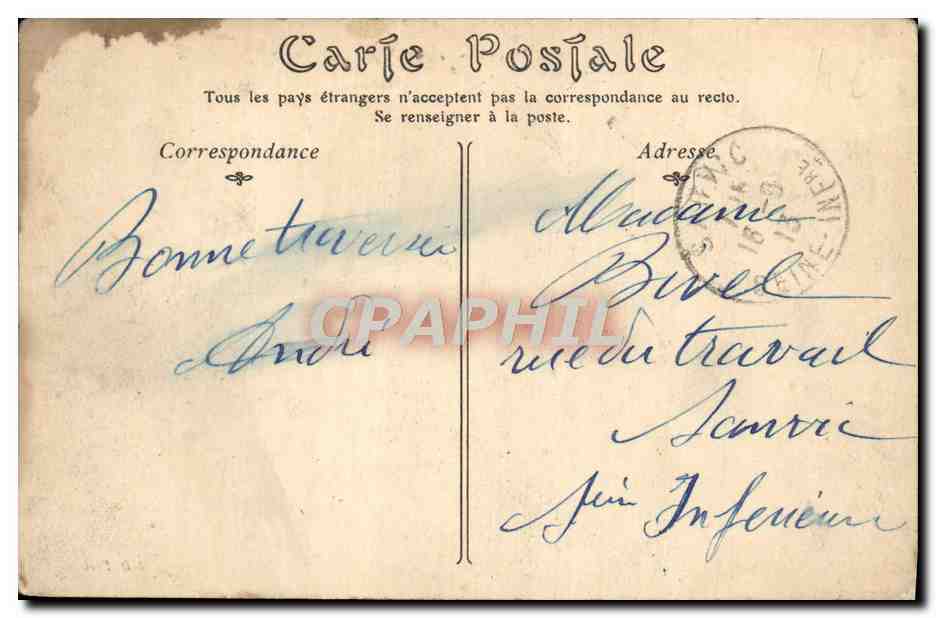 Carte Postale
Tous les pays étrangers n'acceptent pas la correspondance au recto.
Se renseigner à la poste.
Correspondance
Adresse
Bonne traversée
André
Madame
Bivel
rue du travail
Sanvic
Seine Inférieure
SANVIC
SEINE-INFRE
CPAPHIL